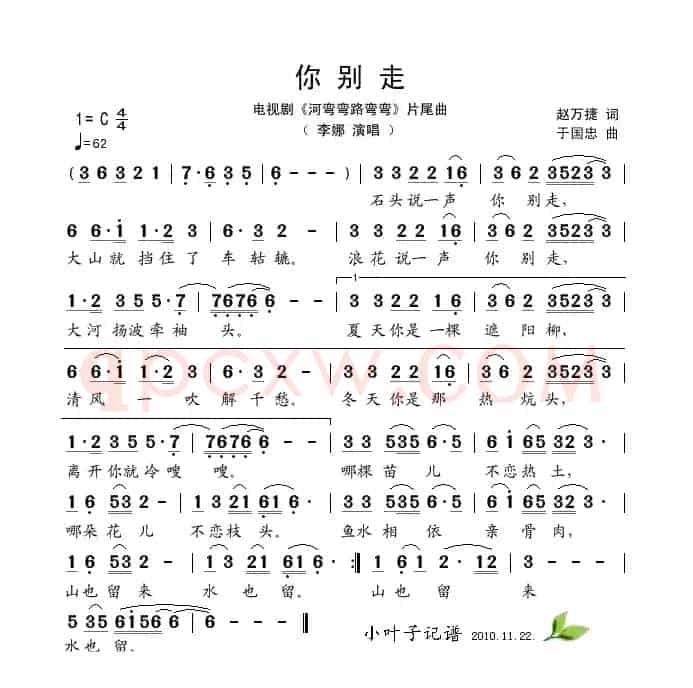 你别走
电视剧《河弯弯路弯弯》片尾曲
（李娜 演唱）
1=C 4/4
♩=62
赵万捷 词
于国忠 曲
(3 6 3 2 1 | 7·6 3 5 | 6 - - - ) | 3 3 2 2 1 6 | 3 6 2 3523 3 |
石头说一声 你别走，
6 6·i 1·2 3 | 6·3 2 - | 3 3 2 2 1 6 | 3 6 2 3523 3 |
大山就挡住了车轱辘。 浪花说一声 你别走，
1·2 3 5 5·7 | 7676 6 - - | 1 3 3 2 2 1 6 | 3 6 2 3523 3 |
大河扬波牵袖头。 夏天你是一棵遮阳柳，
6 6·i 1·2 3 | 6·3 2 - | 3 3 2 2 1 6 | 3 6 2 3523 3 |
清风一吹解千愁。 冬天你是那热炕头，
1·2 3 5 5·7 | 7676 6 - - | 3 3 535 6· | 6 i 65 3 · |
离开你就冷嗖嗖。 哪棵苗儿 不恋热土，
1 6 53 2 - | 1 3 21 61 6· | 3 3 535 6· | 6 i 65 3 · |
哪朵花儿 不恋枝头。 鱼水相依 亲骨肉，
1 6 53 2 - | 1 3 21 61 6 · :| 1 6 61 2·12 | 3 - - - |
山也留来 水也留。 山也留来
5 35 6156 6 | 6 - - ‖
水也留。
小叶子记谱 2010.11.22.
qpcxw.COM